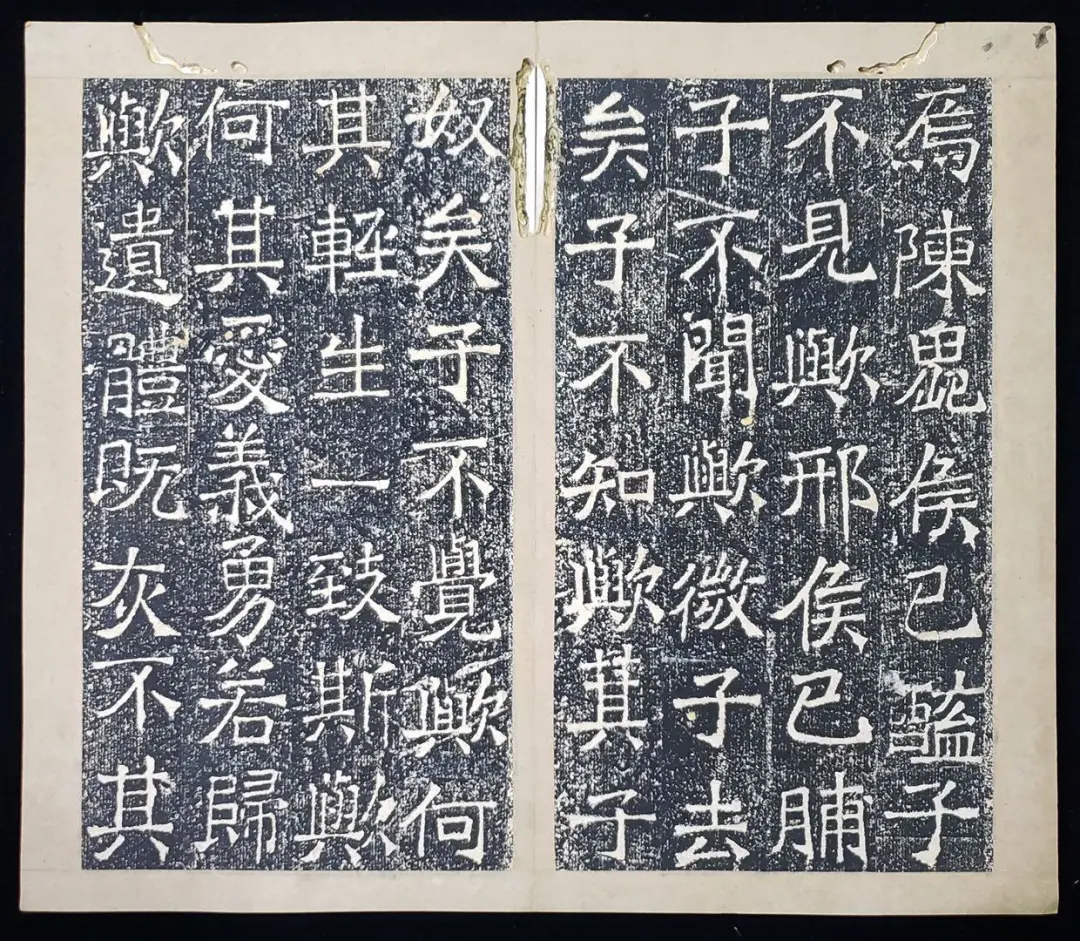 焉陳鬼侯已醢子
不見歟邢侯已脯
子不聞歟微子去
矣子不知歟萁子
奴矣子不覺歟何
其輕生一致斯歟
何其愛義勇若歸
歟遺體既灰不其